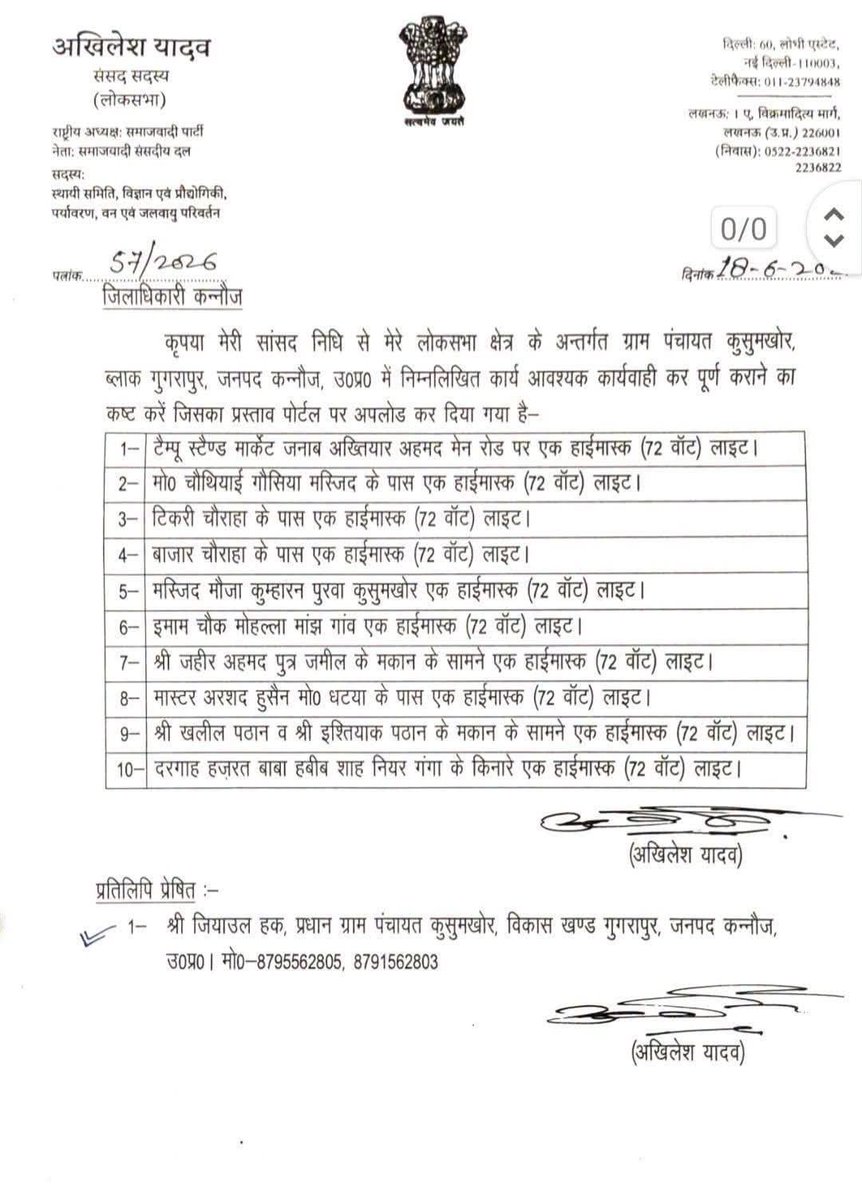 अखिलेश यादव
संसद सदस्य
(लोकसभा)
राष्ट्रीय अध्यक्ष: समाजवादी पार्टी
नेता: समाजवादी संसदीय दल
सदस्य:
स्थायी समिति, विज्ञान एवं प्रौद्योगिकी,
पर्यावरण, वन एवं जलवायु परिवर्तन
सत्यमेव जयते
दिल्ली: 60, लोधी एस्टेट,
नई दिल्ली-110003,
टेलीफैक्स: 011-23794848
लखनऊ: 1 ए, विक्रमादित्य मार्ग,
लखनऊ (उ.प्र.) 226001
(निवास): 0522-2236821
2236822
0/0
पत्रांक 57/2026
दिनांक 18-6-20
जिलाधिकारी कन्नौज
कृपया मेरी सांसद निधि से मेरे लोकसभा क्षेत्र के अन्तर्गत ग्राम पंचायत कुसुमखोर,
ब्लाक गुगरापुर, जनपद कन्नौज, उ0प्र0 में निम्नलिखित कार्य आवश्यक कार्यवाही कर पूर्ण कराने का
कष्ट करें जिसका प्रस्ताव पोर्टल पर अपलोड कर दिया गया है–
1– टैम्पू स्टैण्ड मार्केट जनाब अख्तियार अहमद मेन रोड पर एक हाईमास्क (72 वॉट) लाइट।
2– मो0 चौथियाई गौसिया मस्जिद के पास एक हाईमास्क (72 वॉट) लाइट।
3– टिकरी चौराहा के पास एक हाईमास्क (72 वॉट) लाइट।
4– बाजार चौराहा के पास एक हाईमास्क (72 वॉट) लाइट।
5– मस्जिद मौजा कुम्हारन पुरवा कुसुमखोर एक हाईमास्क (72 वॉट) लाइट।
6– इमाम चौक मोहल्ला मांझ गांव एक हाईमास्क (72 वॉट) लाइट।
7– श्री जहीर अहमद पुत्र जमील के मकान के सामने एक हाईमास्क (72 वॉट) लाइट।
8– मास्टर अरशद हुसैन मो0 धटया के पास एक हाईमास्क (72 वॉट) लाइट।
9– श्री खलील पठान व श्री इश्तियाक पठान के मकान के सामने एक हाईमास्क (72 वॉट) लाइट।
10– दरगाह हज़रत बाबा हबीब शाह नियर गंगा के किनारे एक हाईमास्क (72 वॉट) लाइट।
(अखिलेश यादव)
प्रतिलिपि प्रेषित :–
1– श्री जियाउल हक, प्रधान ग्राम पंचायत कुसुमखोर, विकास खण्ड गुगरापुर, जनपद कन्नौज,
उ0प्र0। मो0–8795562805, 8791562803
(अखिलेश यादव)